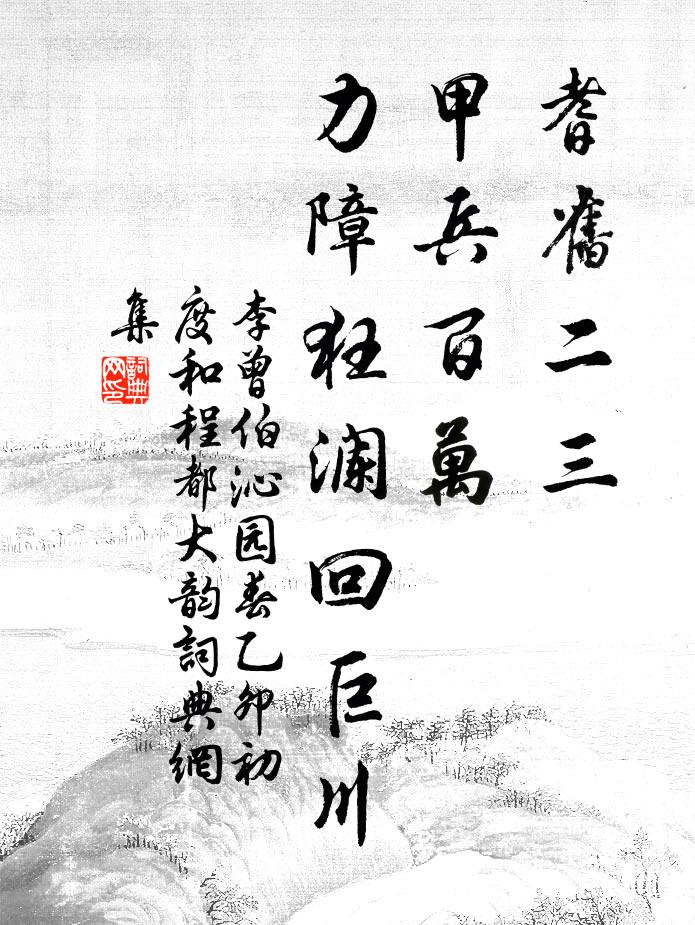 耆舊二三
甲兵百萬
力障狂澜回巨川
李曾伯沁园春乙卯初
度和程都大韵詞典網
集
詞典
网印